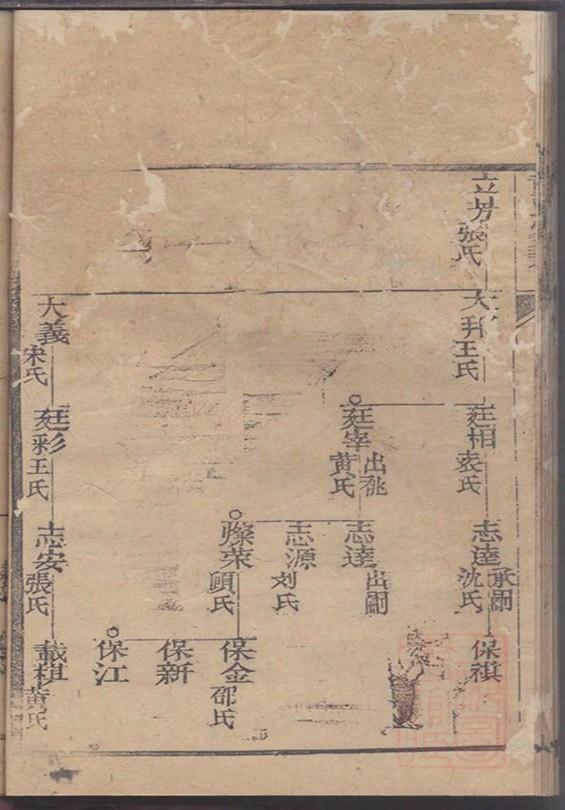 立芳
張氏
大
王氏
廷相
袁氏
志達
承嗣
沈氏
保祺
廷宰
出祧
黄氏
志達
出嗣
志源
刘氏
燦荣
顧氏
保金
邵氏
保新
保江
大義
宋氏
廷彩
王氏
志安
張氏
載
黄氏